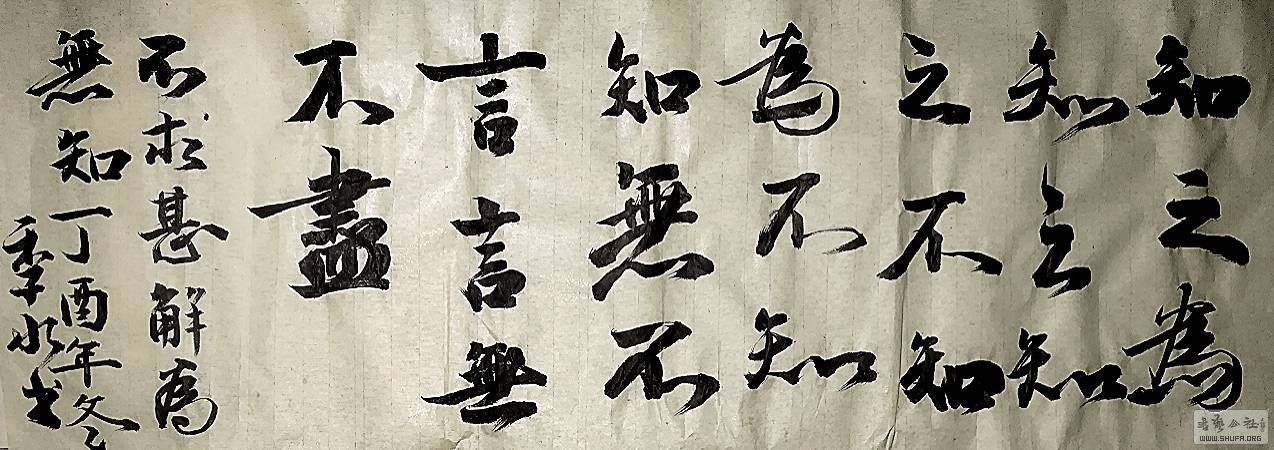 知之為
知之知
之不知
為不知
知無不
言言無
不盡
不求甚解為
無知一丁酉年冬
季水书
WWW.SHUFA.ORG